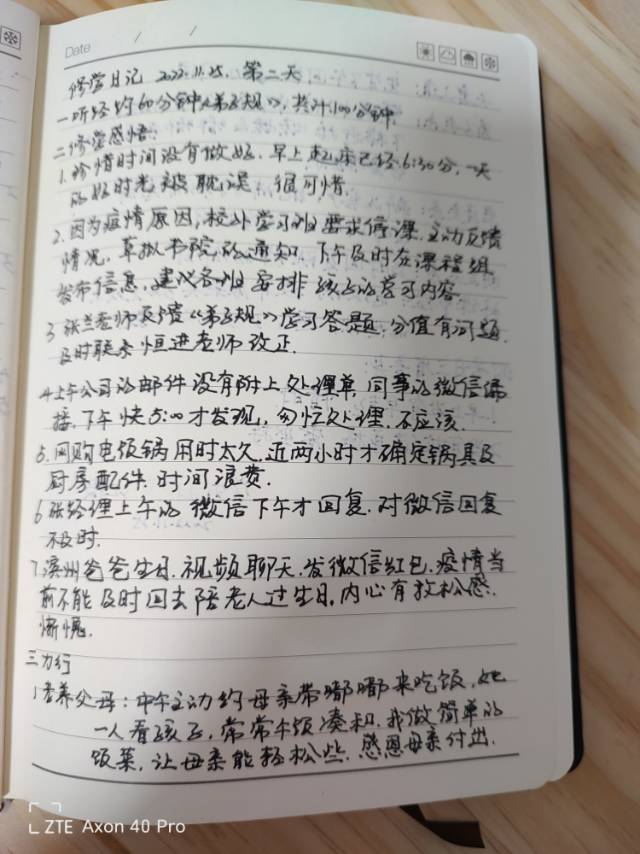 Date / /
修学日记 2022.11.25. 第二天
一听经约60分钟《弟子规》,共计100分钟.
二修学感悟:
1.珍惜时间没有做好.早上起床已经6:30分,一天
的好时光被耽误.很可惜.
2.因为疫情原因,校外学习班要求停课.主动反馈
情况.草拟书院的通知.下午及时在课程组
发布信息,建议各班安排孩子的学习内容.
3 张兰老师反馈《弟子规》学习答题.分值有问题.
及时联系恒进老师改正.
4上午公司的邮件没有附上处理单.同事的微信
接.下午快5:00才发现,匆忙处理.不应该.
5.网购电饭锅用时太久.近两小时才确定锅具及
厨房配件.时间浪费.
6 张经理上午的微信下午才回复.对微信回复
不及时.
7.滨州爸爸生日.视频聊天.发微信红包.疫情当
前不能及时回去陪老人过生日.内心有放松感.
惭愧.
三力行
1孝养父母:中午主动约母亲带嘟嘟来吃饭.她
一人看孩子,常常午饭凑和.我做简单的
饭菜.让母亲能轻松些.感恩母亲付出.
ZTE Axon 40 Pro